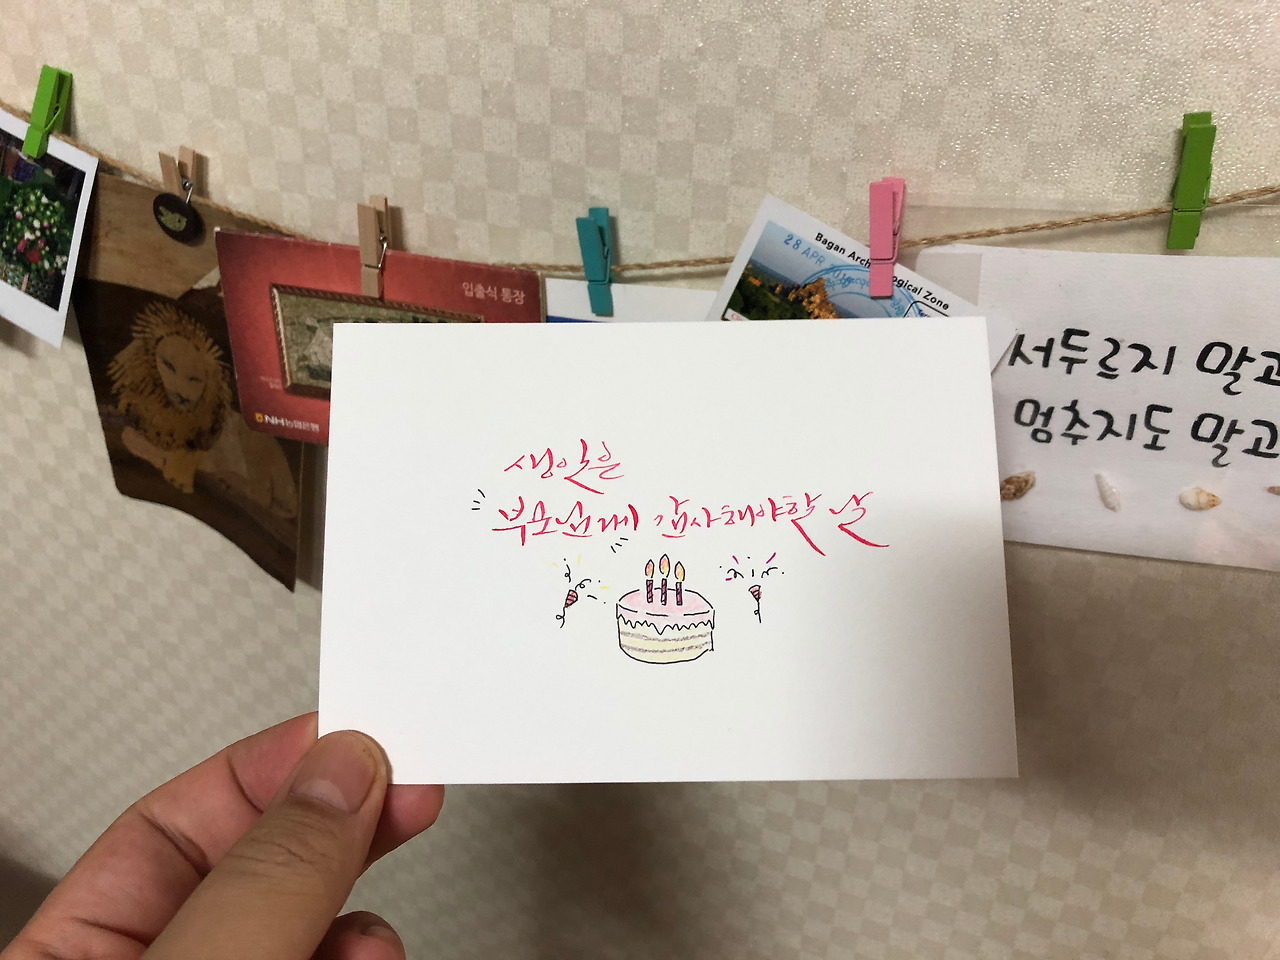 입출식 통장
NH농협은행
28 APR
Bagan Arch
ogical Zone
서두르지 말고
멈추지도 말고
생일은
부모님께 감사해야할 날